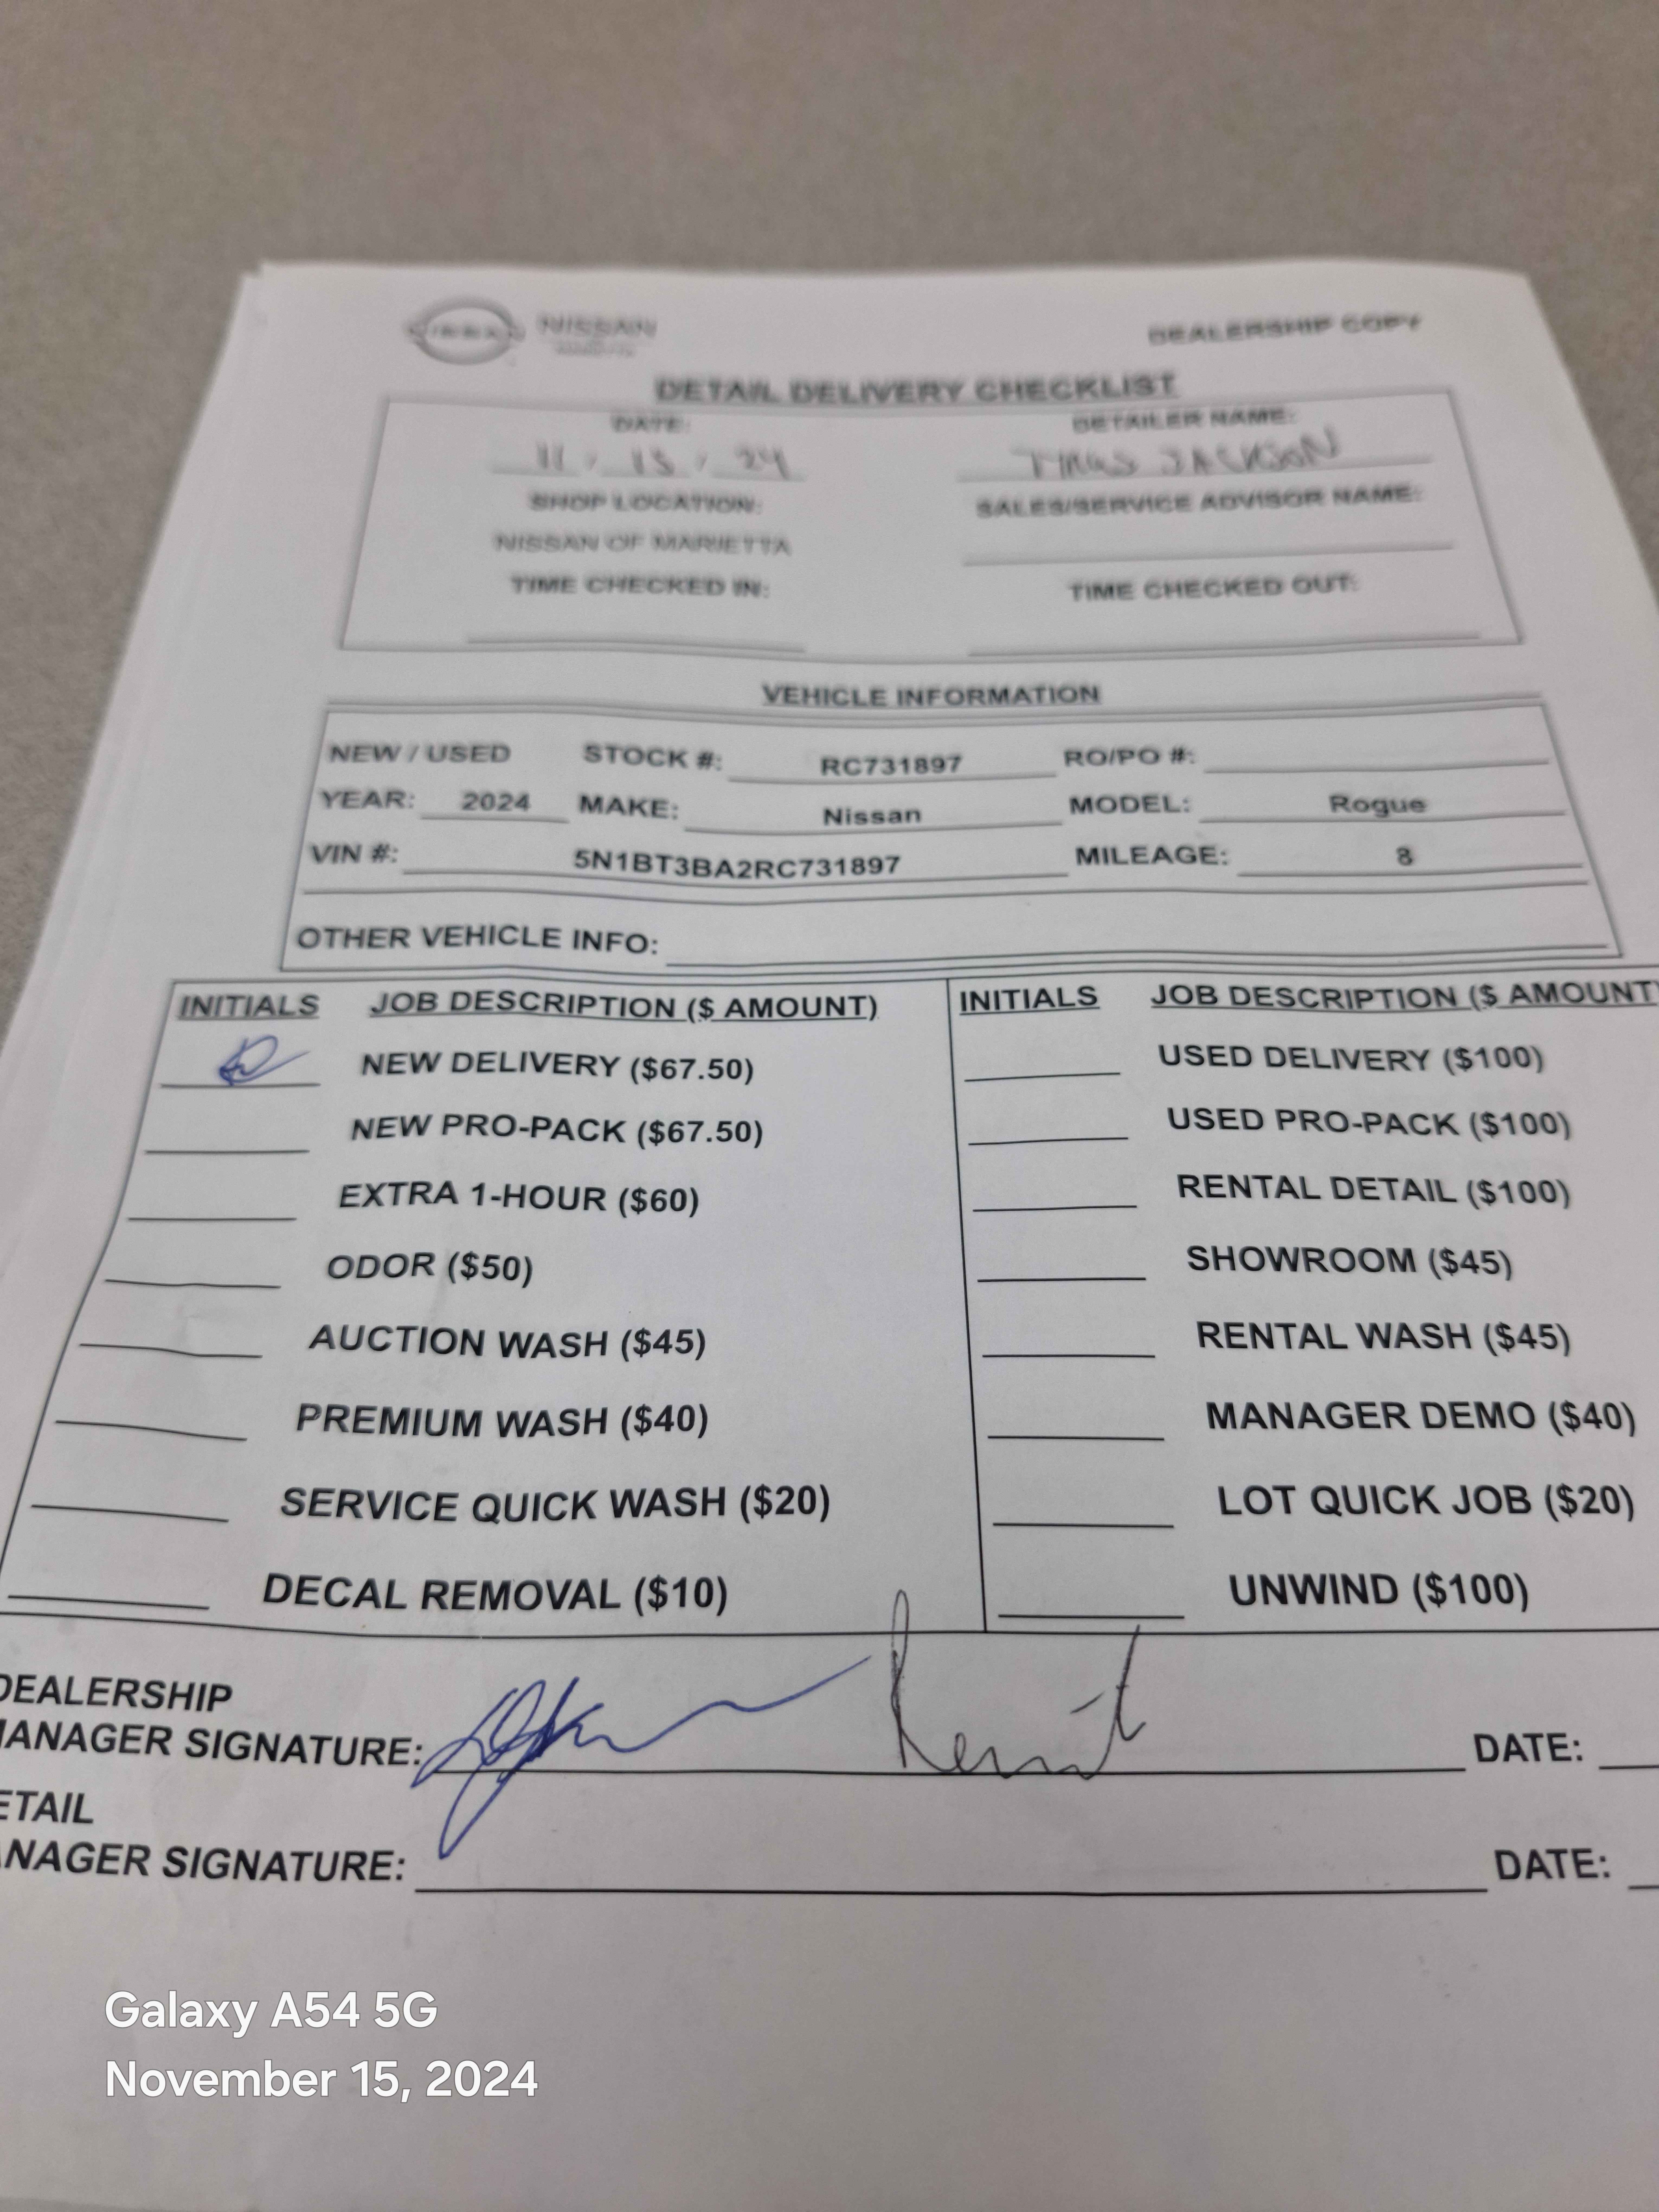 NISSAN
DEALERSHIP COPY
DETAIL DELIVERY CHECKLIST
DATE: DETAILER NAME:
JACKSON
SHOP LOCATION: SALES/SERVICE ADVISOR NAME:
NISSAN OF MARIETTA
TIME CHECKED IN: TIME CHECKED OUT:
VEHICLE INFORMATION
NEW / USED STOCK #: RC731897 RO/PO #:
YEAR: 2024 MAKE: Nissan MODEL: Rogue
VIN #: 5N1BT3BA2RC731897 MILEAGE: 8
OTHER VEHICLE INFO:
INITIALS JOB DESCRIPTION ($ AMOUNT) INITIALS JOB DESCRIPTION ($ AMOUNT)
NEW DELIVERY ($67.50) USED DELIVERY ($100)
NEW PRO-PACK ($67.50) USED PRO-PACK ($100)
EXTRA 1-HOUR ($60) RENTAL DETAIL ($100)
ODOR ($50) SHOWROOM ($45)
AUCTION WASH ($45) RENTAL WASH ($45)
PREMIUM WASH ($40) MANAGER DEMO ($40)
SERVICE QUICK WASH ($20) LOT QUICK JOB ($20)
DECAL REMOVAL ($10) UNWIND ($100)
DEALERSHIP
MANAGER SIGNATURE: DATE:
ETAIL
ANAGER SIGNATURE: DATE:
Galaxy A54 5G
November 15, 2024